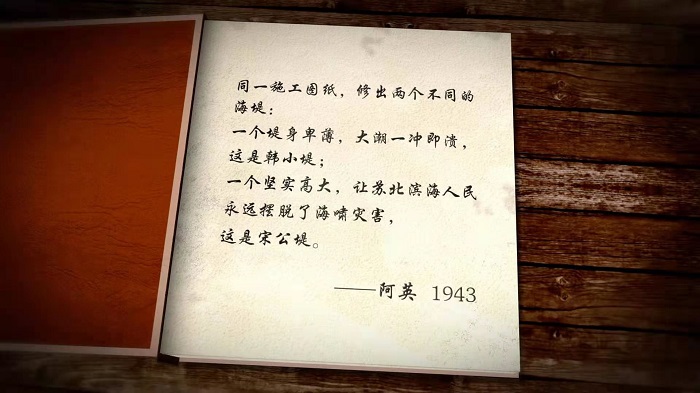 同一施工图纸，修出两个不同的
海堤：
一个堤身卑薄，大潮一冲即溃，
这是韩小堤；
一个坚实高大，让苏北滨海人民
永远摆脱了海啸灾害，
这是宋公堤。
——阿英 1943